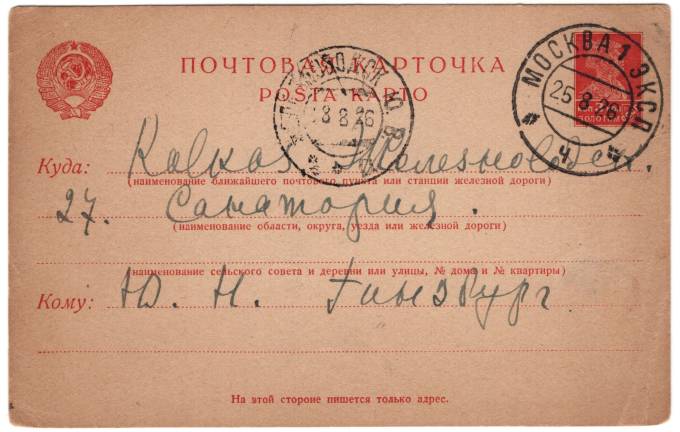 ПОЧТОВАЯ КАРТОЧКА
POŜTA KARTO
МОСКВА 1 ЭКСП.
25.8.26
Ч
ЖЕЛЕЗНОВОДСК
28 8 26
Куда: Кавказ Железноводск.
(наименование ближайшего почтового пункта или станции железной дороги)
27. Санатория.
(наименование области, округа, уезда или железной дороги)
(наименование сельского совета и деревни или улицы, № дома и № квартиры)
Кому: Ю. Н. Гинзбург
На этой стороне пишется только адрес.